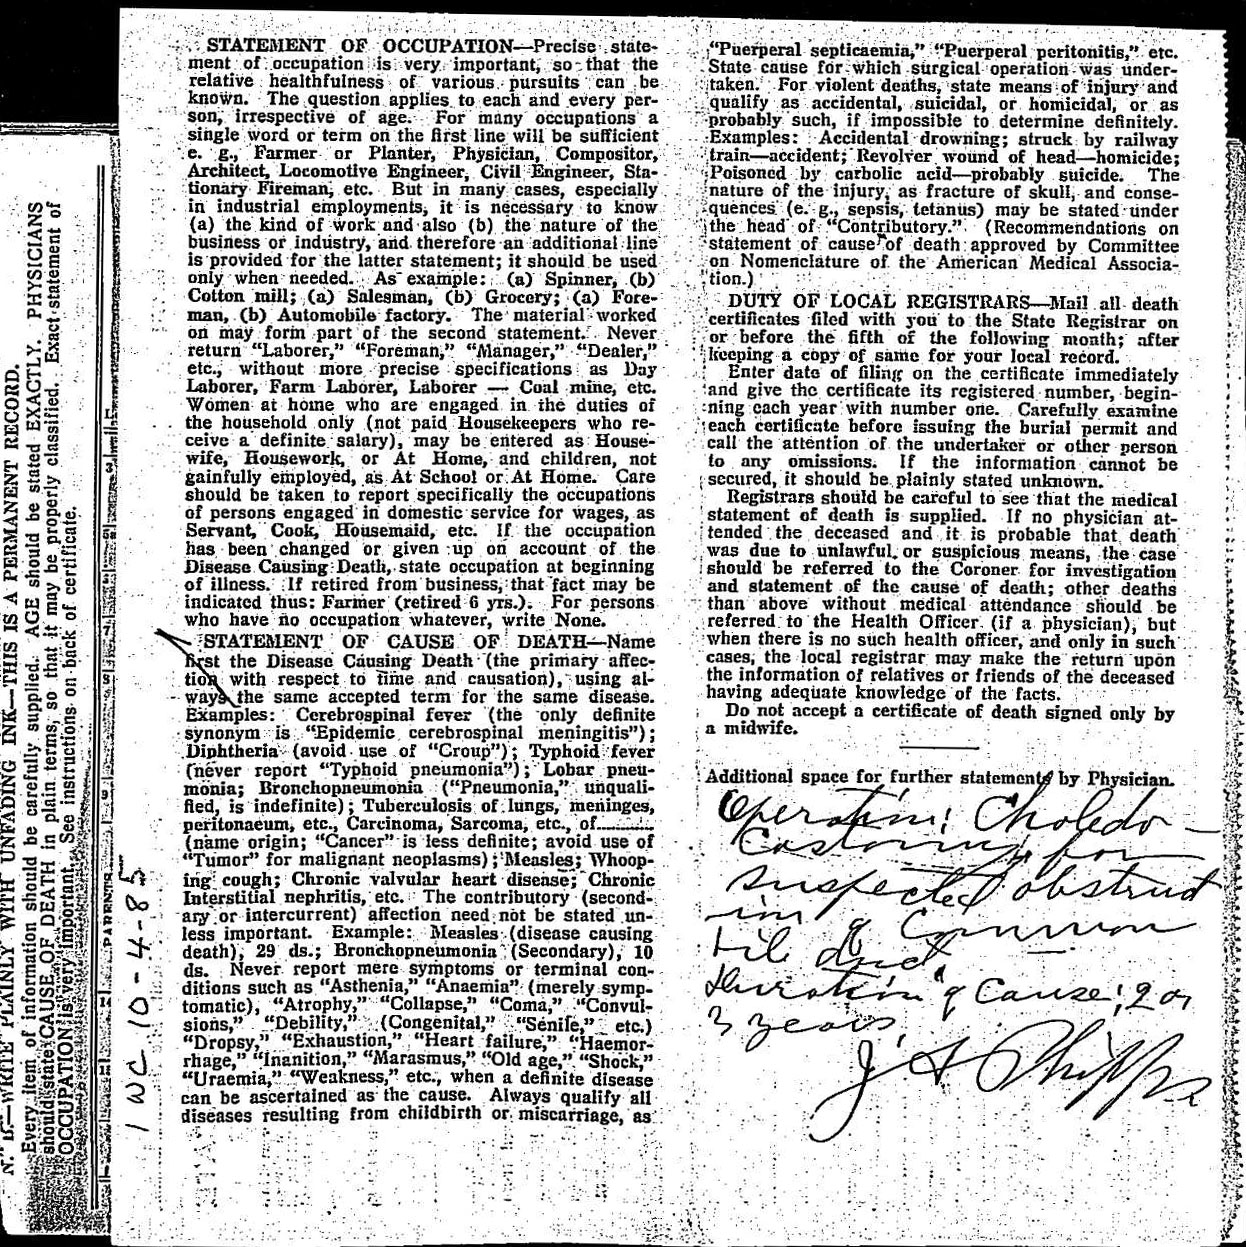 N. B.—WRITE PLAINLY WITH UNFADING INK—THIS IS A PERMANENT RECORD.
Every item of information should be carefully supplied. AGE should be stated EXACTLY. PHYSICIANS
should state CAUSE OF DEATH in plain terms, so that it may be properly classified. Exact statement of
OCCUPATION is very important. See instructions on back of certificate.
PARENTS
1 WC 10-4-85
STATEMENT OF OCCUPATION—Precise state-
ment of occupation is very important, so that the
relative healthfulness of various pursuits can be
known. The question applies to each and every per-
son, irrespective of age. For many occupations a
single word or term on the first line will be sufficient
e. g., Farmer or Planter, Physician, Compositor,
Architect, Locomotive Engineer, Civil Engineer, Sta-
tionary Fireman, etc. But in many cases, especially
in industrial employments, it is necessary to know
(a) the kind of work and also (b) the nature of the
business or industry, and therefore an additional line
is provided for the latter statement; it should be used
only when needed. As example: (a) Spinner, (b)
Cotton mill; (a) Salesman, (b) Grocery; (a) Fore-
man, (b) Automobile factory. The material worked
on may form part of the second statement. Never
return "Laborer," "Foreman," "Manager," "Dealer,"
etc., without more precise specifications as Day
Laborer, Farm Laborer, Laborer — Coal mine, etc.
Women at home who are engaged in the duties of
the household only (not paid Housekeepers who re-
ceive a definite salary), may be entered as House-
wife, Housework, or At Home, and children, not
gainfully employed, as At School or At Home. Care
should be taken to report specifically the occupations
of persons engaged in domestic service for wages, as
Servant, Cook, Housemaid, etc. If the occupation
has been changed or given up on account of the
Disease Causing Death, state occupation at beginning
of illness. If retired from business, that fact may be
indicated thus: Farmer (retired 6 yrs.). For persons
who have no occupation whatever, write None.
STATEMENT OF CAUSE OF DEATH—Name
first the Disease Causing Death (the primary affec-
tion with respect to time and causation), using al-
ways the same accepted term for the same disease.
Examples: Cerebrospinal fever (the only definite
synonym is "Epidemic cerebrospinal meningitis");
Diphtheria (avoid use of "Croup"); Typhoid fever
(never report "Typhoid pneumonia"); Lobar pneu-
monia; Bronchopneumonia ("Pneumonia," unquali-
fied, is indefinite); Tuberculosis of lungs, meninges,
peritonaeum, etc., Carcinoma, Sarcoma, etc., of..........
(name origin; "Cancer" is less definite; avoid use of
"Tumor" for malignant neoplasms); Measles; Whoop-
ing cough; Chronic valvular heart disease; Chronic
Interstitial nephritis, etc. The contributory (second-
ary or intercurrent) affection need not be stated un-
less important. Example: Measles (disease causing
death), 29 ds.; Bronchopneumonia (Secondary), 10
ds. Never report mere symptoms or terminal con-
ditions such as "Asthenia," "Anaemia" (merely symp-
tomatic), "Atrophy," "Collapse," "Coma," "Convul-
sions," "Debility," (Congenital," "Senile," etc.)
"Dropsy," "Exhaustion," "Heart failure," "Haemor-
rhage," "Inanition," "Marasmus," "Old age," "Shock,"
"Uraemia," "Weakness," etc., when a definite disease
can be ascertained as the cause. Always qualify all
diseases resulting from childbirth or miscarriage, as
"Puerperal septicaemia," "Puerperal peritonitis," etc.
State cause for which surgical operation was under-
taken. For violent deaths, state means of injury and
qualify as accidental, suicidal, or homicidal, or as
probably such, if impossible to determine definitely.
Examples: Accidental drowning; struck by railway
train—accident; Revolver wound of head—homicide;
Poisoned by carbolic acid—probably suicide. The
nature of the injury, as fracture of skull, and conse-
quences (e. g., sepsis, tetanus) may be stated under
the head of "Contributory." (Recommendations on
statement of cause of death approved by Committee
on Nomenclature of the American Medical Associa-
tion.)
DUTY OF LOCAL REGISTRARS—Mail all death
certificates filed with you to the State Registrar on
or before the fifth of the following month; after
keeping a copy of same for your local record.
Enter date of filing on the certificate immediately
and give the certificate its registered number, begin-
ning each year with number one. Carefully examine
each certificate before issuing the burial permit and
call the attention of the undertaker or other person
to any omissions. If the information cannot be
secured, it should be plainly stated unknown.
Registrars should be careful to see that the medical
statement of death is supplied. If no physician at-
tended the deceased and it is probable that death
was due to unlawful or suspicious means, the case
should be referred to the Coroner for investigation
and statement of the cause of death; other deaths
than above without medical attendance should be
referred to the Health Officer (if a physician), but
when there is no such health officer, and only in such
cases, the local registrar may make the return upon
the information of relatives or friends of the deceased
having adequate knowledge of the facts.
Do not accept a certificate of death signed only by
a midwife.
Additional space for further statements by Physician.
Operation: Choledo-
for
suspected obstruct
ion of Common
bile duct
Duration of Cause: 2 or
3 years
J A Phipps